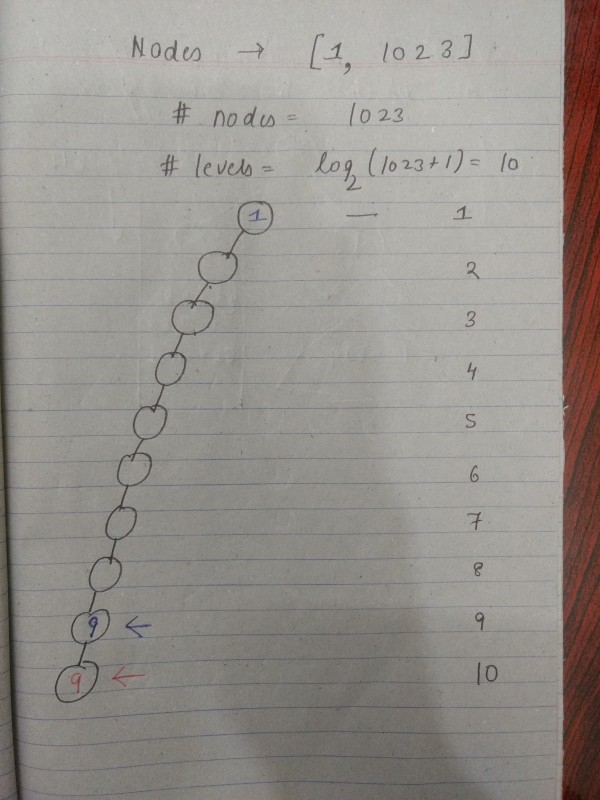 Nodes → [1, 1023]
# nodes = 1023
# levels = log2 (1023+1) = 10
1 — 1
2
3
4
5
6
7
8
9 ← 9
9 ← 10